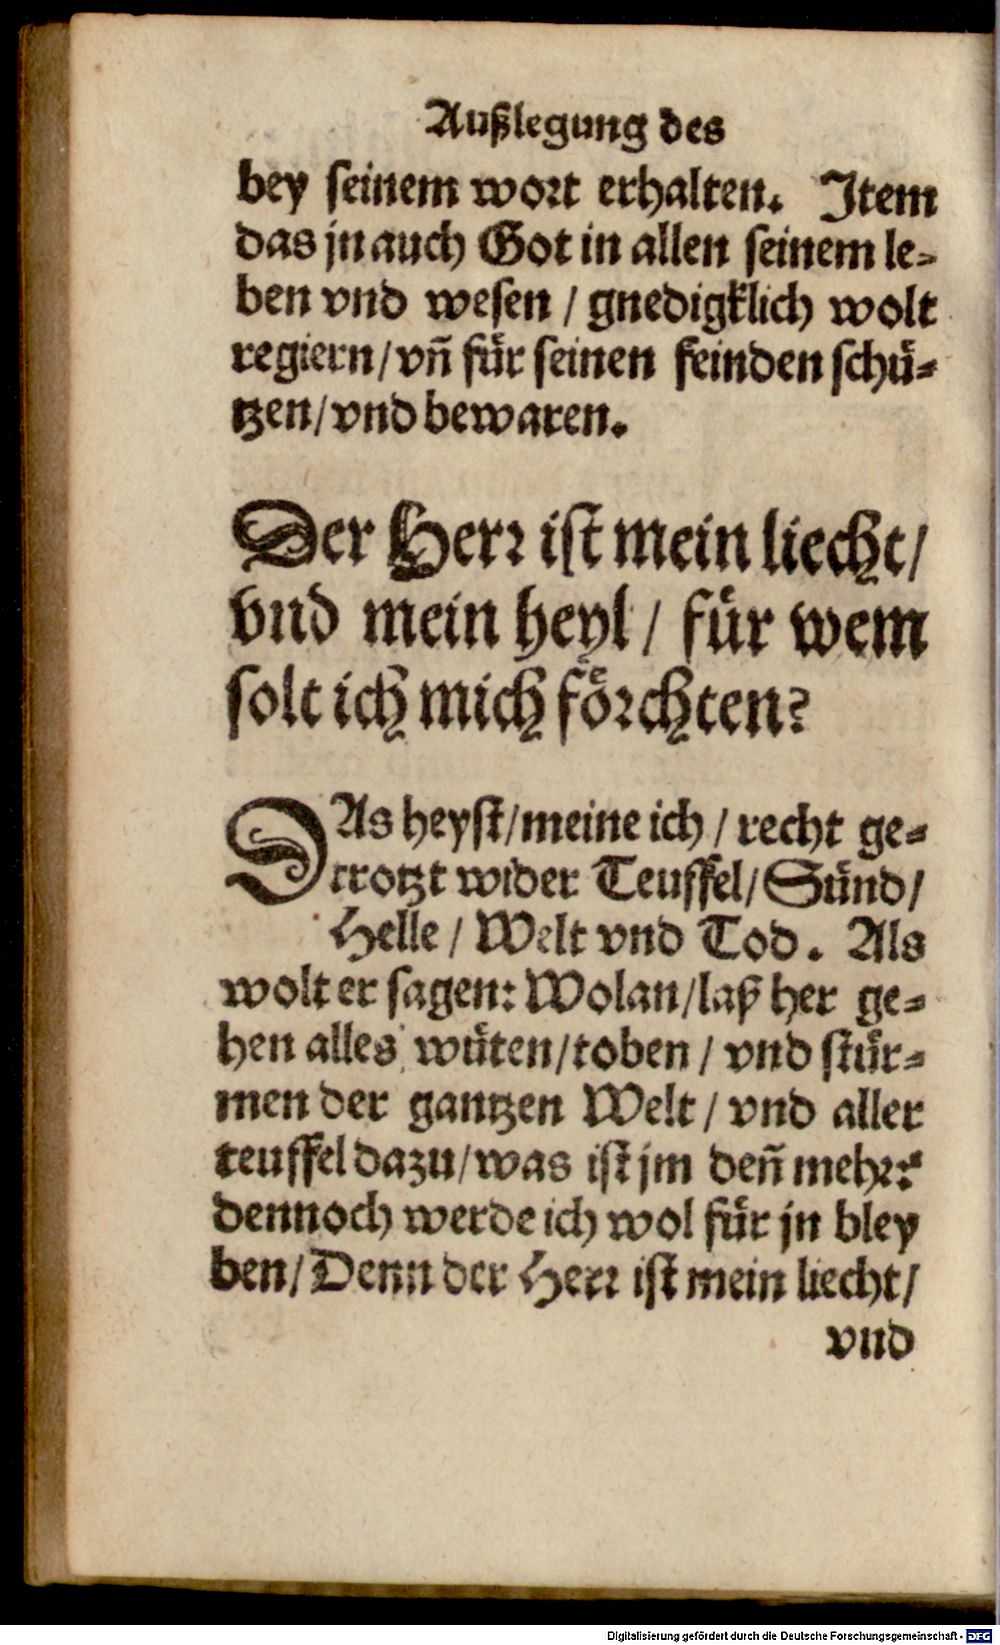 Außlegung des
bey seinem wort erhalten. Item
das jn auch Got in allen seinem le⸗
ben vnd wesen / gnedigklich wolt
regiern / vñ fuͤr seinen feinden schuͤ⸗
tzen / vnd bewaren.
Der Herr ist mein liecht /
vnd mein heyl / fuͤr wem
solt ich mich foͤrchten?
DAs heyst / meine ich / recht ge⸗
trotzt wider Teuffel / Suͤnd /
Helle / Welt vnd Tod. Als
wolt er sagen: Wolan / laß her ge⸗
hen alles wuͤten / toben / vnd stuͤr⸗
men der gantzen Welt / vnd aller
teuffel dazu / was ist jm deñ mehr?
dennoch werde ich wol fuͤr jn bley
ben / Denn der Herr ist mein liecht /
vnd
Digitalisierung gefördert durch die Deutsche Forschungsgemeinschaft - DFG